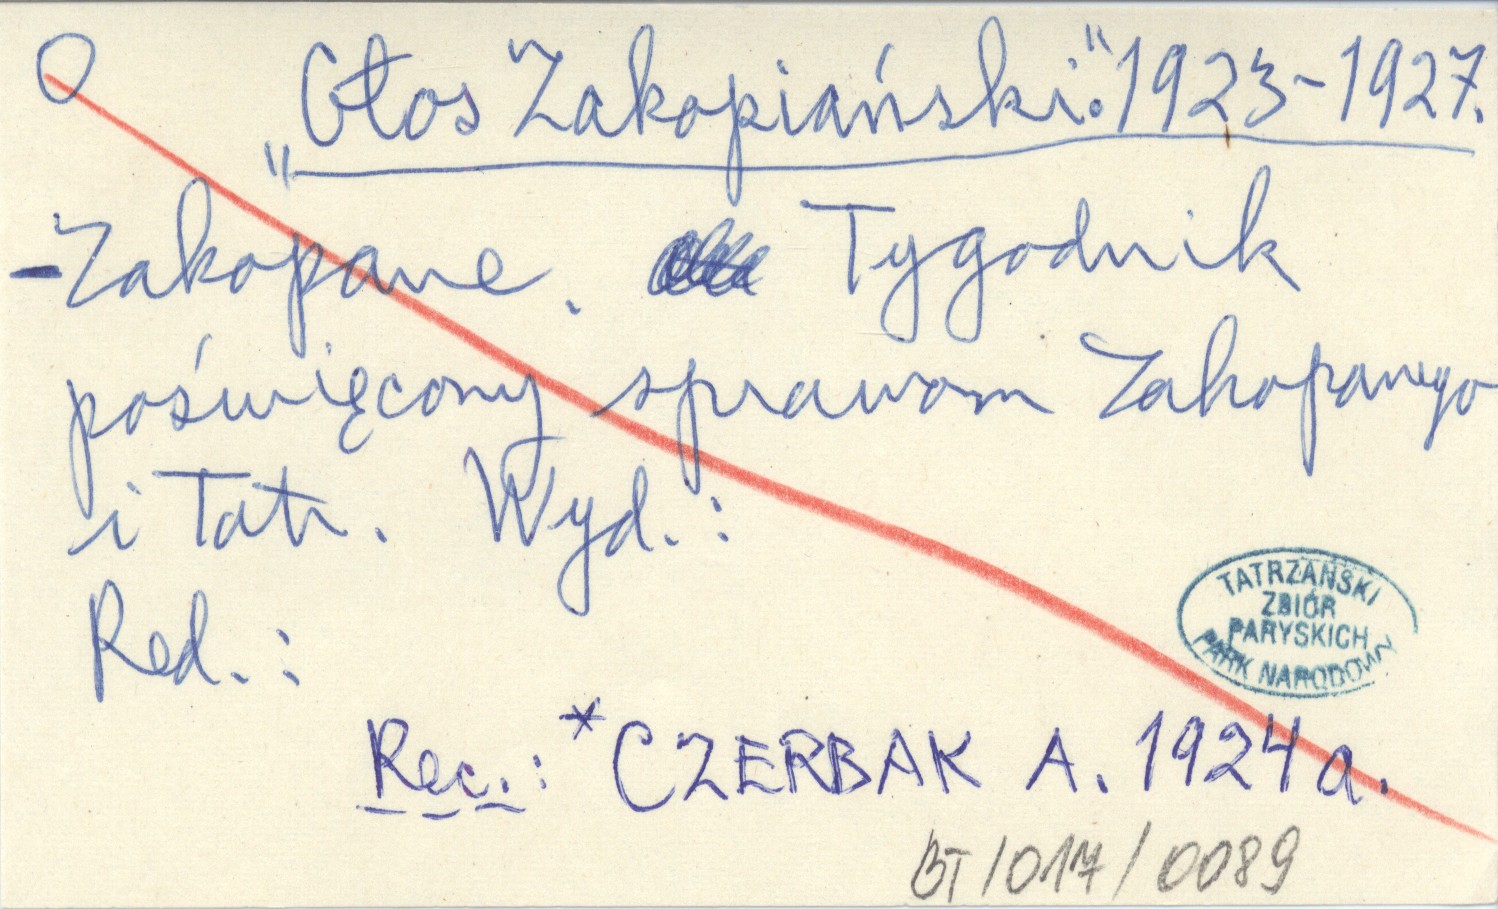 „Głos Zakopiański". 1923-1927.
- Zakopane. Tygodnik
poświęcony sprawom Zakopanego
i Tatr. Wyd.:
Red.:
TATRZAŃSKI
ZBIÓR
PARYSKICH
PARK NARODOWY
Rec.: *CZERBAK A. 1924a.
BT/017/0089